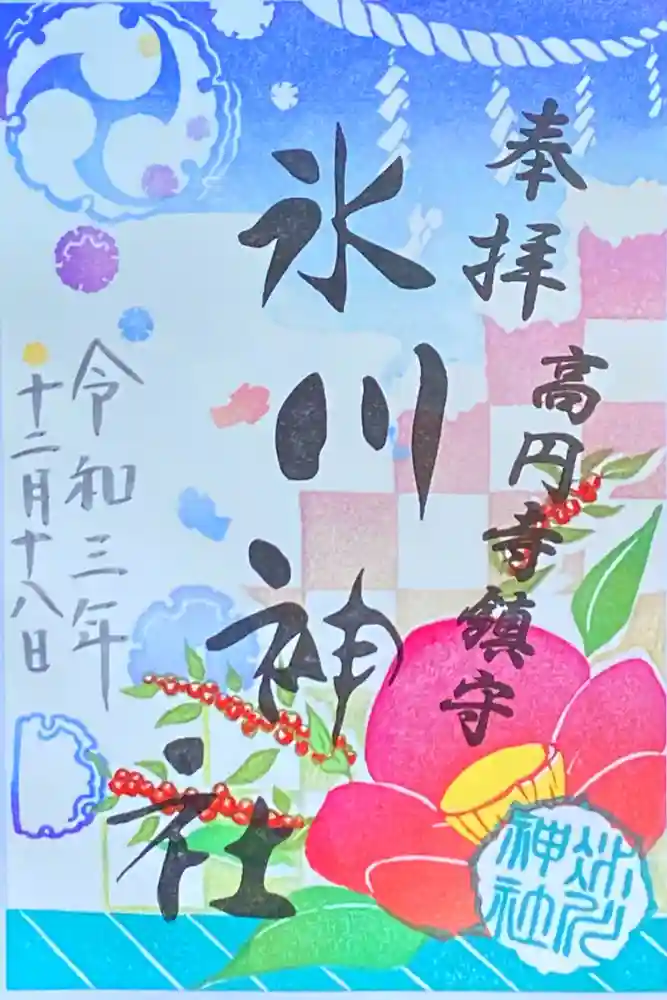 奉拝
高円寺鎮守
氷川神社
令和三年
十二月十八日
氷川
神社